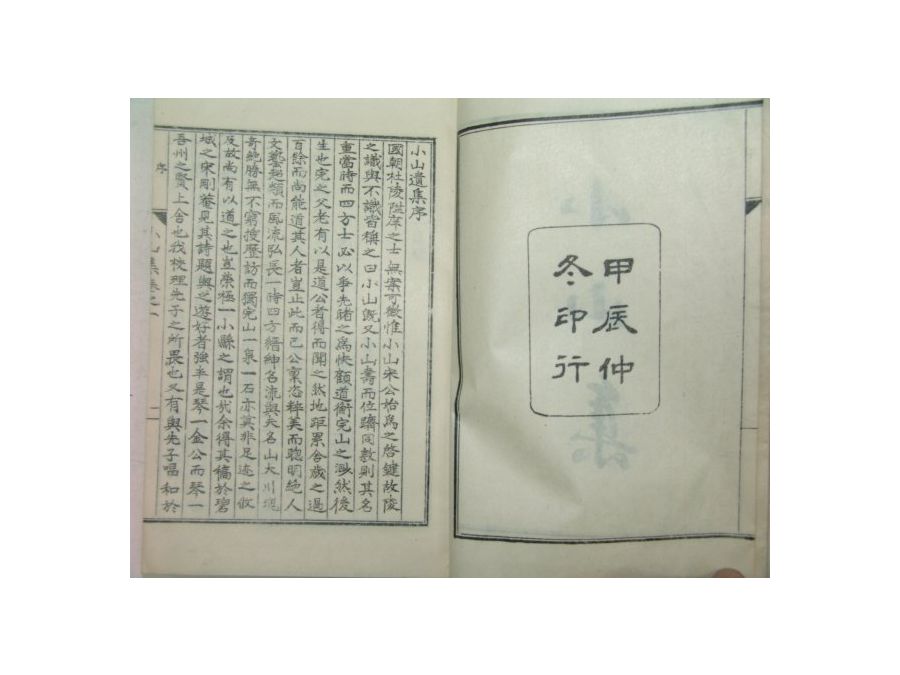 甲辰仲
冬印行
小山遺集序
國朝杜陵陞庠之士無案可徵惟小山宋公始爲之啓鍵故陵
之識與不識皆稱之曰小山旣又小山壽而位躋同敦則其名
重當時而四方士必以爭先睹之爲快顧道衡完山之
然後
生也完之父老有以是道公者得而聞之然地距累舍歲之過
百餘而尚能道其人者豈止此而已公稟姿粹美而聰明絶人
文藝超類而風流弘長一時四方搢紳名流與夫名山大川瑰
奇絶勝無不窮搜歷訪而獨完山一泉一石亦莫非足迹之收
及故尚有以道之也豈榮極一小縣之謂也哉余得其稿於碧
城之宋剛菴見其詩題與之遊好者強半是琴一金公而琴一
吾州之賢上舍也我校理先子之所畏也又有與先子唱和於
序
小山集卷之一
小山集